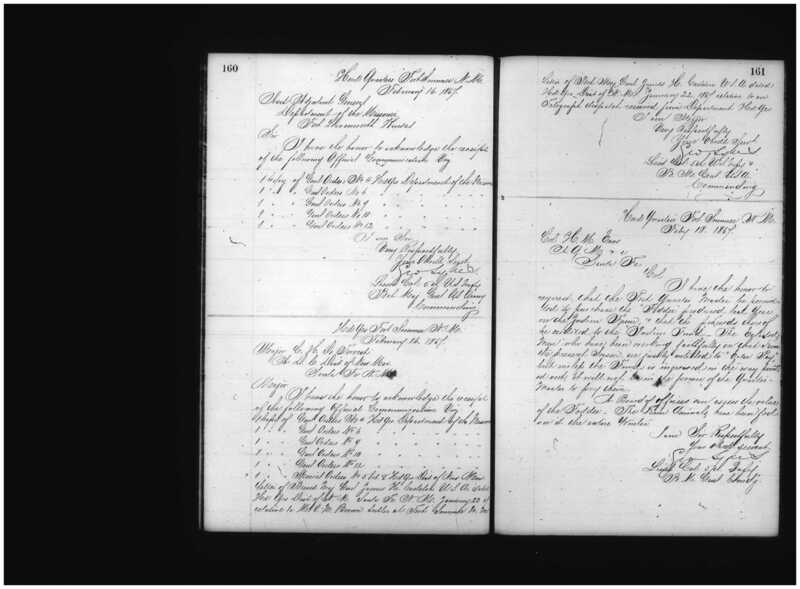 160
Head Quarters Fort Sumner N. M.
February 16, 1867.
Asst Adjutant General
Department of the Missouri
Fort Leavenworth Kansas
Sir
I have the honor to acknowledge the receipt
of the following Official Communications Viz
1 Copy of Genl Orders No 4 Hd Qrs Department of the Missouri
1 " " Genl Orders No 6 " " " "
1 " " Genl Orders No 9 " " " "
1 " " Genl Orders No 10 " " " "
1 " " Genl Orders No 12 " " " "
I am Sir
Very Respectfully
Your Obedt Servt
Geo Sykes
Lieut Col 5th U.S. Infty
Bvt Maj Genl U.S. Army
Commanding
Hd Qrs Fort Sumner N. M.
February 16, 1867.
Major C. H. De Forrest
A. A. A. G. Dist of New Mex
Santa Fe N. M.
Major
I have the honor to acknowledge the receipt
of the following Official Communications Viz
1 Copy of Genl Orders No 4 Hd Qrs Department of the Missouri
1 " " Genl Orders No 6 " " " "
1 " " Genl Orders No 9 " " " "
1 " " Genl Orders No 10 " " " "
1 " " Genl Orders No 12 " " " "
1 " " Special Orders No 5 & 8 Hd Qrs Dist of New Mexico
Letter of Brevet Maj Genl James H. Carleton U.S.A. dated
Hd Qrs Dist of N. M. Santa Fe N. M. January 22
relative to Mr Brown Sutler at Fort Sumner N. M.
161
Letter of Bvt Maj Genl James H. Carleton U.S.A. dated
Hd Qrs Dist of N. M. January 22, 1867 relative to an
Telegraph dispatch received from Department Hd Qrs
I am Major
Very Respectfully
Your Obedt Servt
Geo Sykes
Lieut Col 5th U.S. Infty &
B. M. Genl U.S.A.
Commanding
Head Quarters Fort Sumner N. M.
Feby 18, 1867.
Col. H. M. Enos
Santa Fe.
Col.
I have the honor to
request that the Post Quarter Master be
to purchase the Fodder produced last year
on the Indian Farm, & that the proceeds thereof
be credited to the Indian Fund. The
Men who have been working faithfully on that Farm
the present season are justly entitled to Extra Pay,
but unless the Fund is increased in the way
out, it will not be in the power of the Quarter
Master to pay them.
A Board of officers can assess the value
of the Fodder. The Farm Animals have been feed
on it the entire Winter.
I am Sir Respectfully
Your Obedt servant
Geo Sykes
Lieut Col 5th Infty
B. M. Genl Comdg